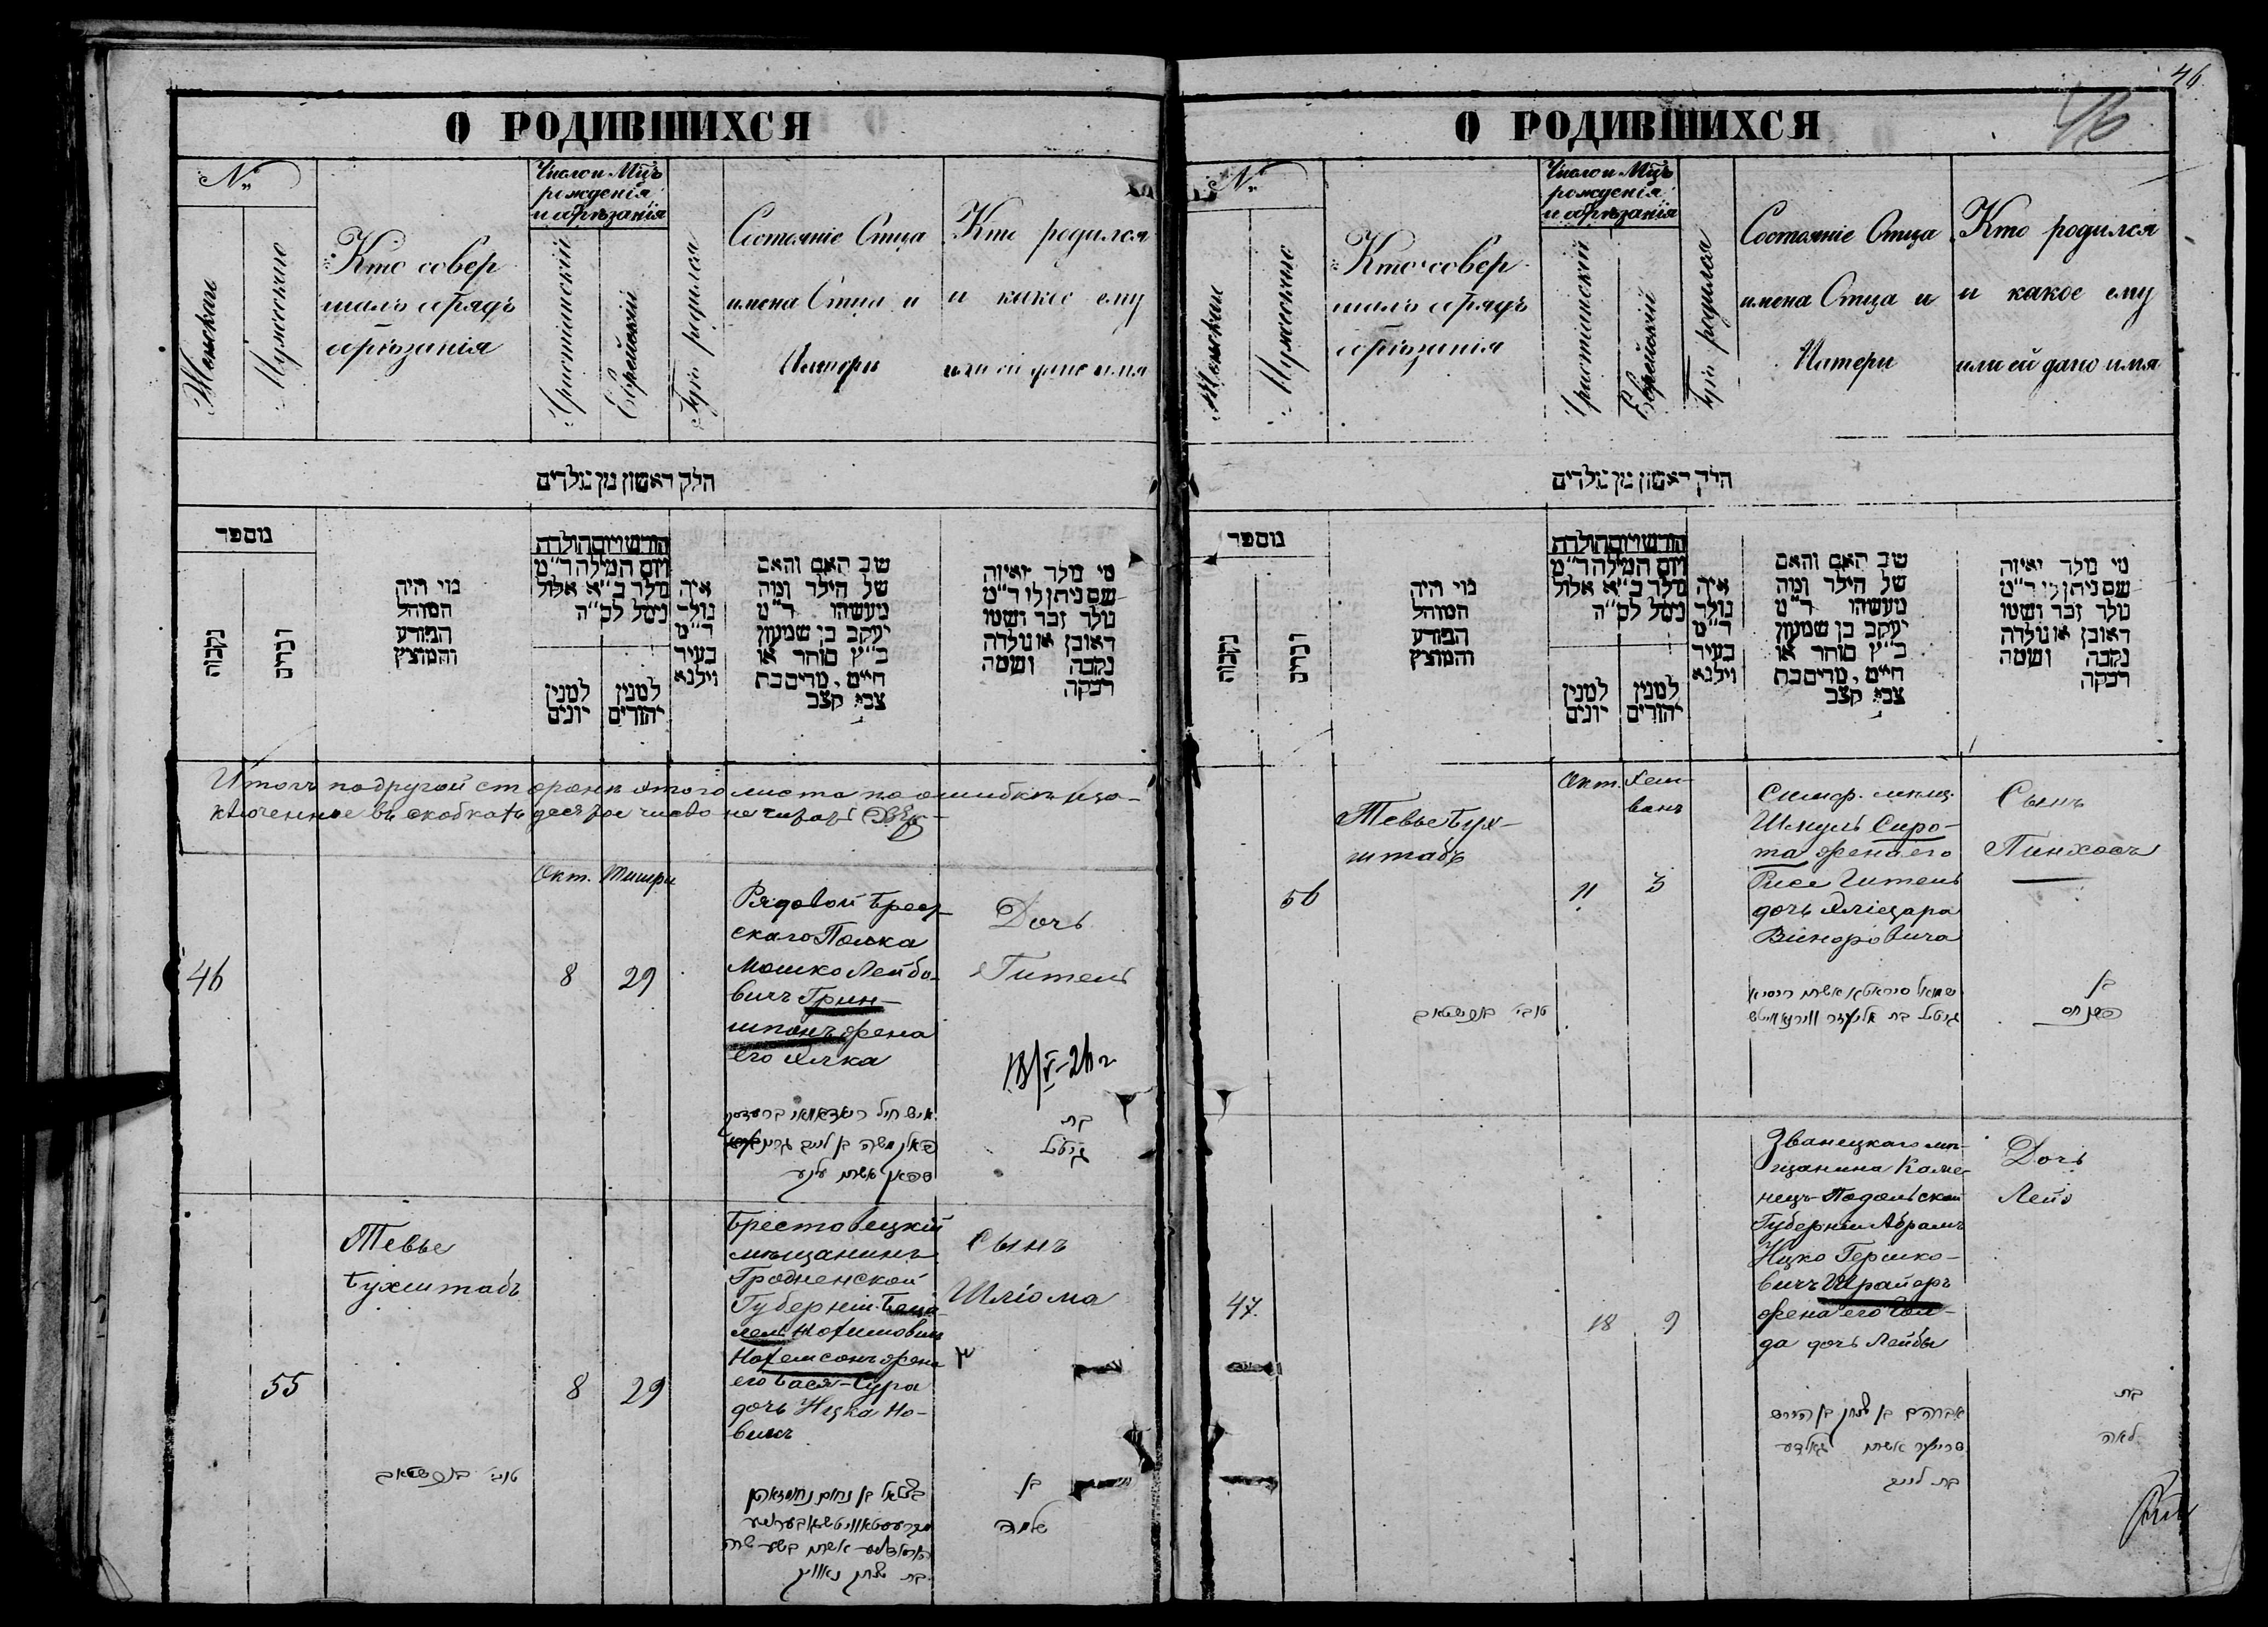 О РОДИВШИХСЯ
№
Женскаго
Мужескаго
Кто совер
шалъ обрядъ
обрѣзанія
Число и Мцъ
рожденія
и обрѣзанія
Христіанскій
Еврейскій
Гдѣ родился
Состояніе Отца
имена Отца и
Матери
Кто родился
и какое ему
или ей дано имя
חלק ראשון מן נולדים
מספר
נקבות
זכרים
מי היה
המוהל
הפורע
והמוצץ
חודש ויום הולדת
ויום המילה ד״מ
נולד כ״א אלול
נימל לח״ה
למנין
יונים
למנין
יהודים
איה
נולד
ד״מ
בעיר
ווילנא
שב האם והאם
של הילד ומה
מעשהו ד״מ
יעקב בן שמעון
כ״ץ סוחר או
חייט, מרים בת
צבי קצב
מי נולד ואיזה
שם ניתן לו ד״מ
נולד זכר ושמו
ראובן או נולדה
נקבה ושמה
רבקה
Итогъ на другой сторонѣ этого листа по ошибкѣ за-
ключенное въ скобкахъ число не читать
Окт. Тишри
46
8
29
Рядовой Брест-
скаго Полка
Мошко Лейбо-
вичъ Грин-
шпанъ жена
его Хачка
Дочь
Гитель
18/V-26 г
בת
גיטל
55
Тевье
Бухштабъ
8
29
Брестовецкій
мѣщанинъ
Гродненской
Губерніи Беца-
лель Нохимовичъ
Нохемсонъ жена
его Бася-Сура
дочь Ицка Но-
викъ
Сынъ
Шліома
טובי' בוכשטאב
בצלאל בן נחום נחמזאהן
בת יצחק נאוויק
בן
שלמה
46
46
О РОДИВШИХСЯ
№
Женскаго
Мужескаго
Кто совер
шалъ обрядъ
обрѣзанія
Число и Мцъ
рожденія
и обрѣзанія
Христіанскій
Еврейскій
Гдѣ родился
Состояніе Отца
имена Отца и
Матери
Кто родился
и какое ему
или ей дано имя
חלק ראשון מן נולדים
מספר
נקבות
זכרים
מי היה
המוהל
הפורע
והמוצץ
חודש ויום הולדת
ויום המילה ד״מ
נולד כ״א אלול
נימל לח״ה
למנין
יונים
למנין
יהודים
איה
נולד
ד״מ
בעיר
ווילנא
שב האם והאם
של הילד ומה
מעשהו ד״מ
יעקב בן שמעון
כ״ץ סוחר או
חייט, מרים בת
צבי קצב
מי נולד ואיזה
שם ניתן לו ד״מ
נולד זכר ושמו
ראובן או נולדה
נקבה ושמה
רבקה
Окт. Хеш-
ванъ
56
Тевье Бух-
штабъ
11
3
Симф. мѣщ.
Шмуль Сиро-
та жена его
Риса Гитель
дочь Эліезара
Сынъ
Пинхосъ
טובי' בוכשטאב
שמואל סיראטא אשתו ריסיא
גיטל בת אליעזר
בן
פינחס
47.
18
9
Званецкаго мѣ-
щанина Каме-
нецъ-Подольской
Губерніи Абрамъ
Ицко Гершко-
вичъ Шрайеръ
жена его Гол-
да дочь Лейбы
Дочь
Лея
אברהם בן יצחק
שרייער אשתו גאלדע
בת לייב
בת
לאה